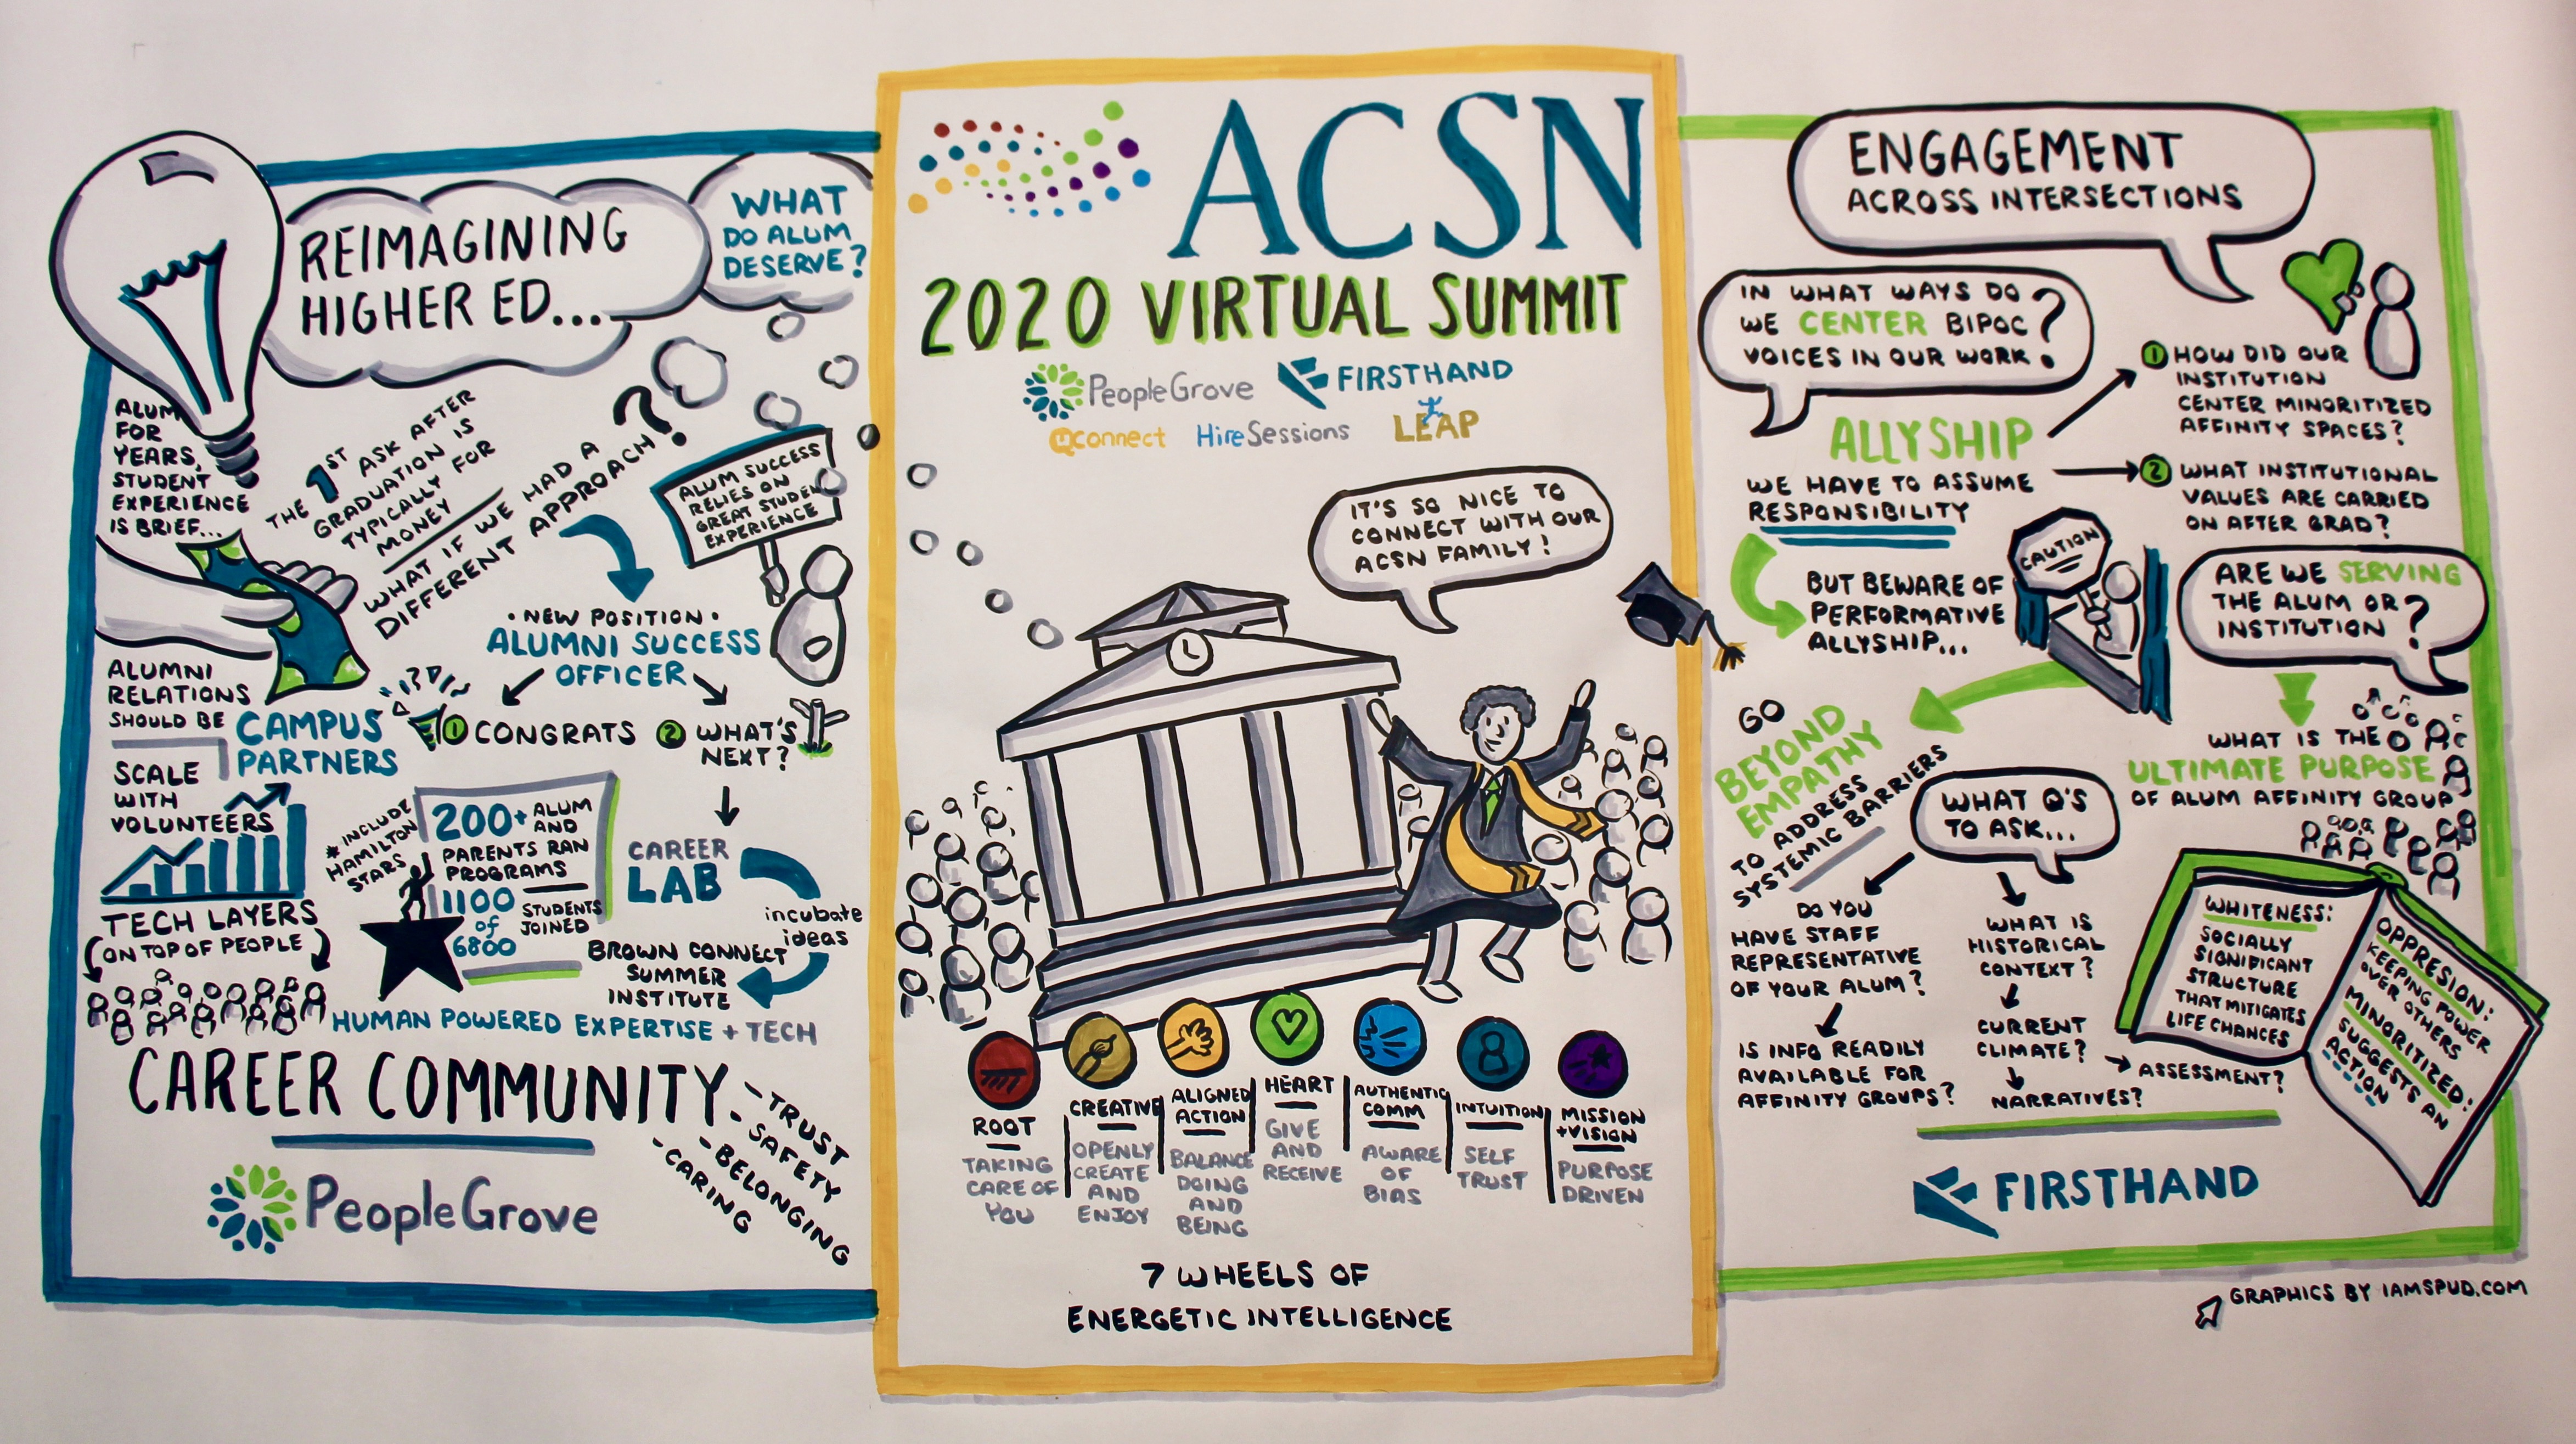 REIMAGINING
HIGHER ED...
WHAT
DO ALUM
DESERVE?
ALUM
FOR
YEARS,
STUDENT
EXPERIENCE
IS BRIEF...
THE 1ST ASK AFTER
GRADUATION IS
TYPICALLY FOR
MONEY
WHAT IF WE HAD A
DIFFERENT APPROACH?
ALUM SUCCESS
RELIES ON
GREAT STUDENT
EXPERIENCE
• NEW POSITION •
ALUMNI SUCCESS
OFFICER
1 CONGRATS
2 WHAT'S
NEXT?
ALUMNI
RELATIONS
SHOULD BE
CAMPUS
PARTNERS
SCALE
WITH
VOLUNTEERS
TECH LAYERS
ON TOP OF PEOPLE
* INCLUDE
HAMILTON
STARS
200+ ALUM
AND
PARENTS RAN
PROGRAMS
1100
of
6800
STUDENTS
JOINED
CAREER
LAB
incubate
ideas
BROWN CONNECT
SUMMER
INSTITUTE
HUMAN POWERED EXPERTISE + TECH
CAREER COMMUNITY
- TRUST
- SAFETY
- BELONGING
- CARING
PeopleGrove
ACSN
2020 VIRTUAL SUMMIT
PeopleGrove
FIRSTHAND
uconnect
HireSessions
LEAP
IT'S SO NICE TO
CONNECT WITH OUR
ACSN FAMILY!
ROOT
TAKING
CARE OF
YOU
CREATIVE
OPENLY
CREATE
AND
ENJOY
ALIGNED
ACTION
BALANCE
DOING
AND
BEING
HEART
GIVE
AND
RECEIVE
AUTHENTIC
COMM
AWARE
OF
BIAS
INTUITION
SELF
TRUST
MISSION
+VISION
PURPOSE
DRIVEN
7 WHEELS OF
ENERGETIC INTELLIGENCE
ENGAGEMENT
ACROSS INTERSECTIONS
IN WHAT WAYS DO
WE CENTER BIPOC
VOICES IN OUR WORK?
ALLYSHIP
WE HAVE TO ASSUME
RESPONSIBILITY
1 HOW DID OUR
INSTITUTION
CENTER MINORITIZED
AFFINITY SPACES?
2 WHAT INSTITUTIONAL
VALUES ARE CARRIED
ON AFTER GRAD?
BUT BEWARE OF
PERFORMATIVE
ALLYSHIP...
CAUTION
ARE WE SERVING
THE ALUM OR
INSTITUTION?
GO
BEYOND
EMPATHY
TO ADDRESS
SYSTEMIC BARRIERS
WHAT IS THE
ULTIMATE PURPOSE
OF ALUM AFFINITY GROUP
WHAT Q'S
TO ASK...
DO YOU
HAVE STAFF
REPRESENTATIVE
OF YOUR ALUM?
IS INFO READILY
AVAILABLE FOR
AFFINITY GROUPS?
WHAT IS
HISTORICAL
CONTEXT?
CURRENT
CLIMATE?
NARRATIVES?
ASSESSMENT?
WHITENESS:
SOCIALLY
SIGNIFICANT
STRUCTURE
THAT MITIGATES
LIFE CHANCES
OPPRESION:
KEEPING POWER
OVER OTHERS
MINORITIZED:
SUGGESTS AN
ACTION
FIRSTHAND
GRAPHICS BY IAMSPUD.COM